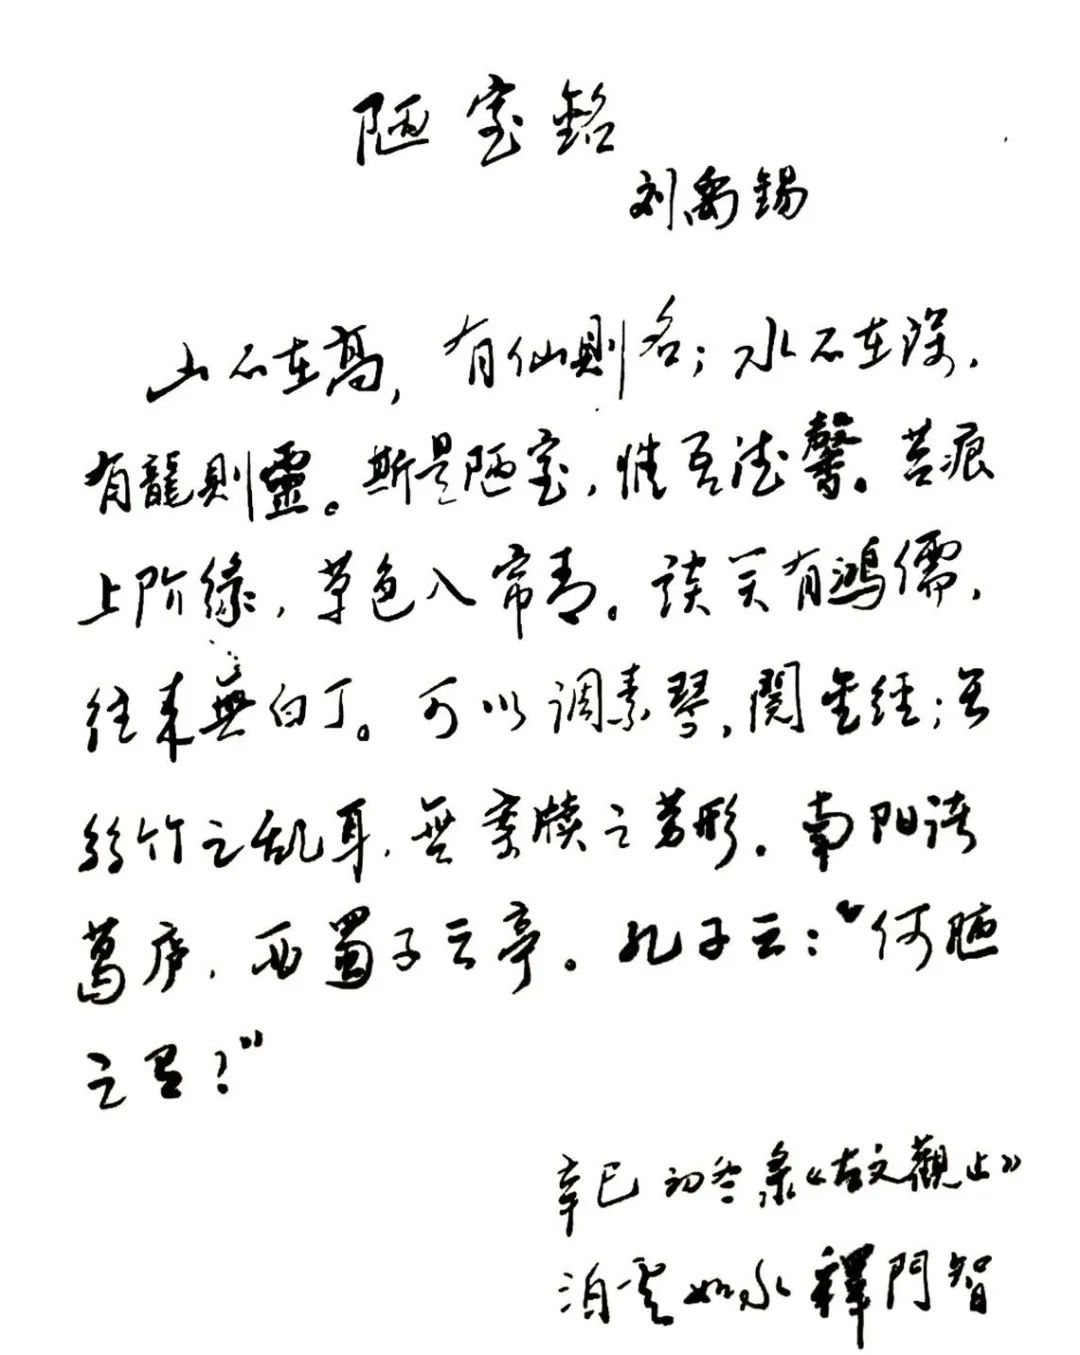 陋室銘
刘禹锡
山不在高，有仙則名；水不在深，
有龍則靈。斯是陋室，惟吾德馨。苔痕
上阶緑，草色入帘青。談笑有鴻儒，
往来無白丁。可以调素琴，閱金經；无
丝竹之乱耳，無案牍之劳形。南阳诸
葛庐，西蜀子云亭。孔子云：“何陋
之有？”
辛巳初冬录《古文觀止》
泊雲如水 釋門智